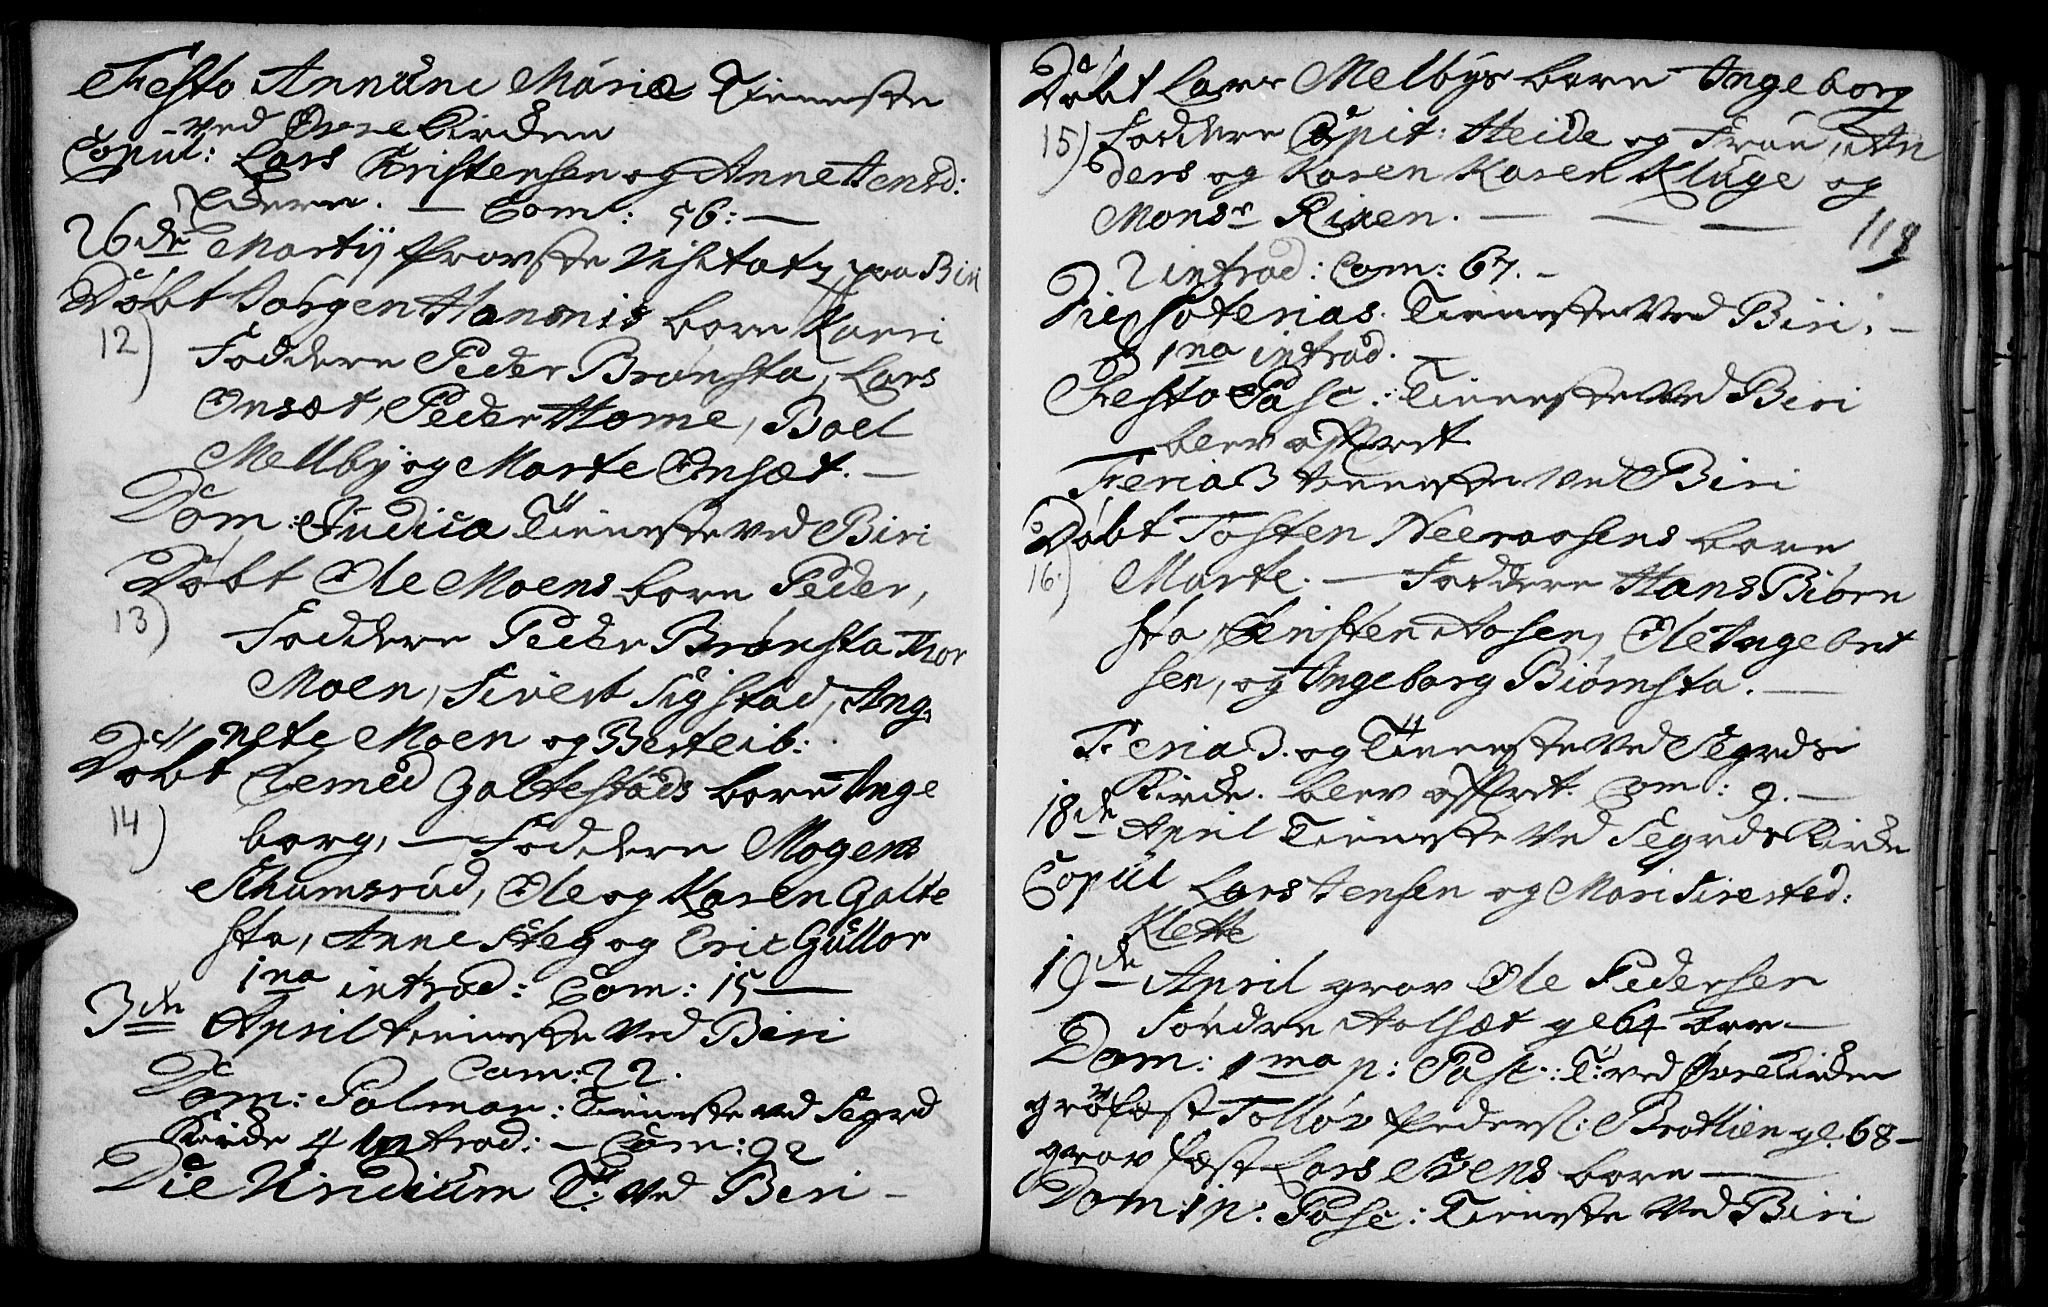 Festo Annunc Mariæ Tienneste
ved Øvre Kircken
Copul: Lars Christensen og Anne Hansd:
Com: 56:
26de Martij Provste Visitatz paa Biri
Døbt Jørgen Hansens barn Kari
12) Faddere Peder Brønsta, Lars
Onsæt, Peder Horne, Boel
Mellby og Marte Onsæt.
Dom: Judica Tienneste ved Biri
Døbt Ole Moens barn Peder,
13) Faddere Peder Brønsta Thor
Moen, Sivert Sigstad, Ang
nete Moen og Berteib:
Døbt Clemed Galtestads barn Inge
14) borg, Faddere Mogens
Schumsrud, Ole og Karen Galte
sta, Anne Steg og Eric Gullor
1na introd: Com: 15
3de April tienneste ved Biri
Com: 22.
Dom: Palmar: Tienneste ved Segrd
Kircke 4 introd: Com: 92
Die Viridium T: ved Biri
Døbt Lars Melbys barn Ingeborg
15) Faddere Capit: Heide og Frue, An
ders og Karen Karen Kluge og
Monsr Rixen.
119
2 introd: Com: 67.
Die Soterias Tienneste ved Biri.
1na introd.
Festo Pasc: Tienneste ved Biri
blev offret
Feria 3 tienneste ved Biri
Døbt Tosten Neeraasens barn
16.) Marte. Faddere Hans Biørn
sta, Christen Aasen, Ole Ingebret
sen, og Ingeborg Biørnsta.
Feria 3. og Tienneste ved Segrds
Kircke. blev offret. Com: 9.
18de April Tienneste ved Segrds Kircke
Copul Lars Jensen og Mari Sivertsd:
Klette
19de April grav Ole Pedersen
Søndre Aalsæt gl 64 aar
Dom: 1ma p: Pasc: T: ved Øvre Kircken
grafæst Tolløv Pedersl: Brodlien gl: 68
grav fæst Lars Svens barn
Dom: 1 p: Pasc: Tienneste ved Biri